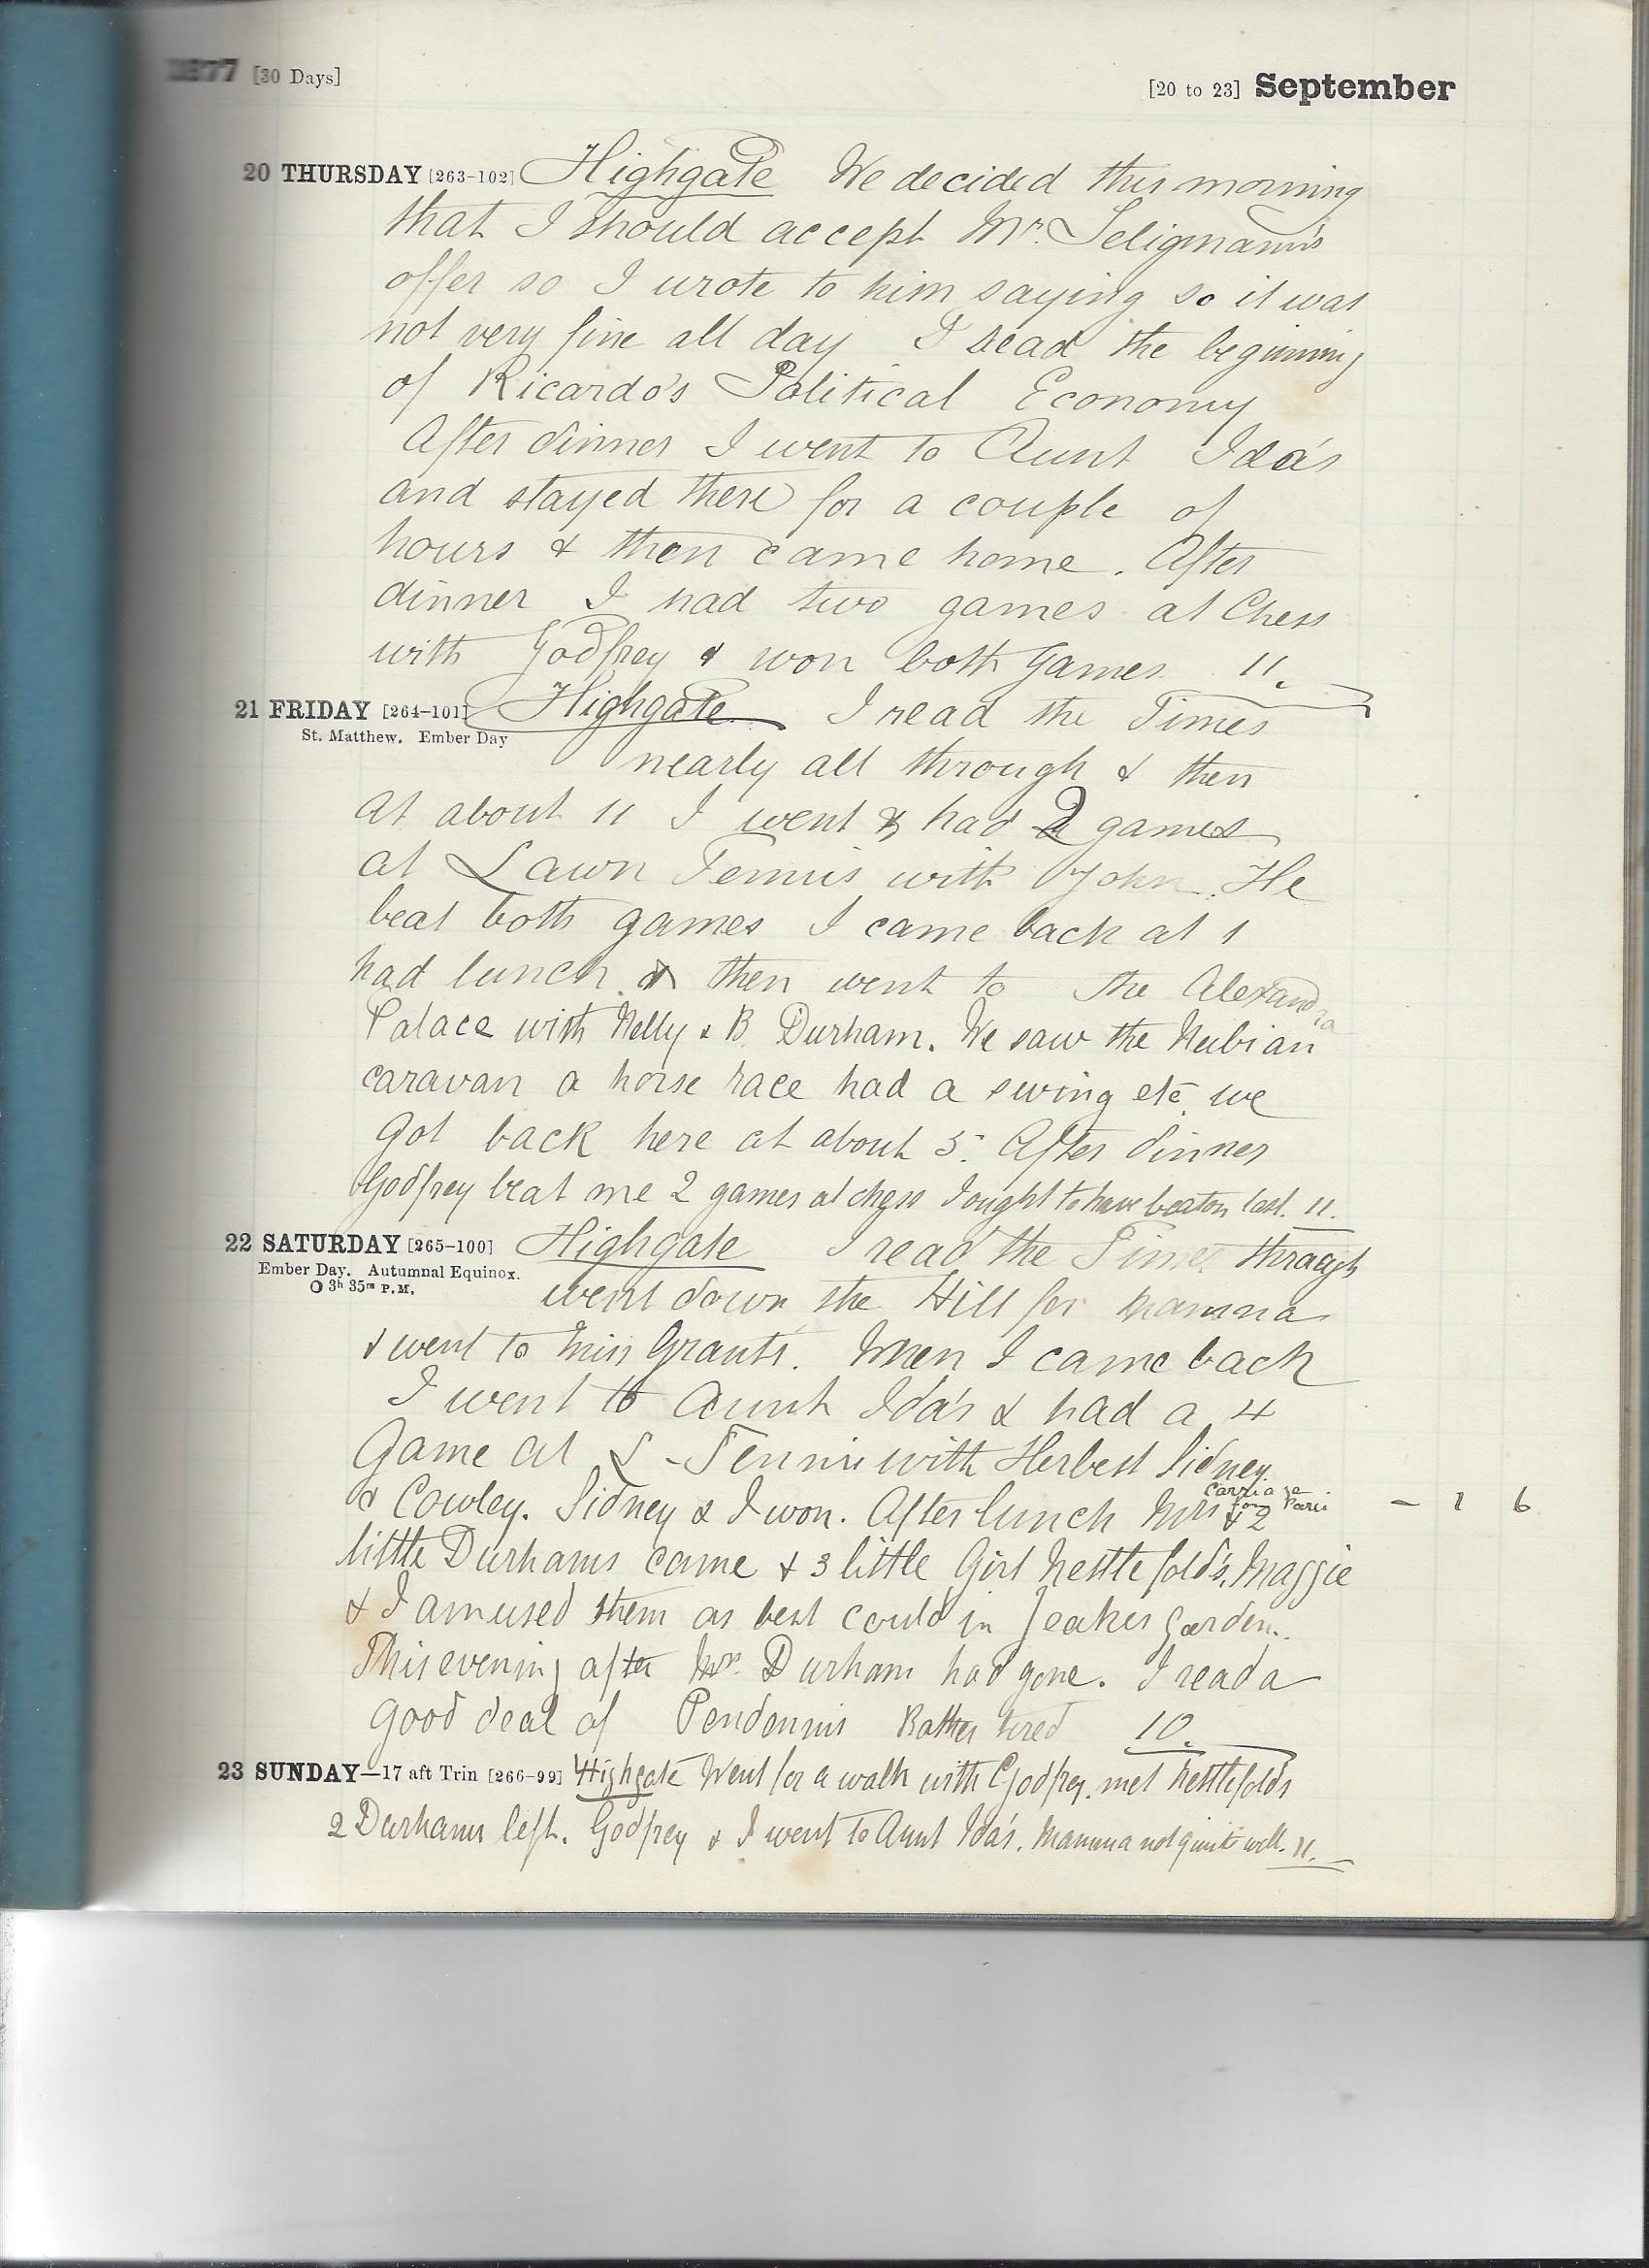 1877 [30 Days] [20 to 23] September
20 THURSDAY [263-102] Highgate We decided this morning
that I should accept Mr. Seligmann's
offer so I wrote to him saying so it was
not very fine all day I read the beginning
of Ricardo's Political Economy
After dinner I went to Aunt Ida's
and stayed there for a couple of
hours & then came home. After
dinner I had two games at Chess
with Godfrey & won both games 11.
21 FRIDAY [264-101] Highgate I read the Times
St. Matthew. Ember Day
nearly all through & then
at about 11 I went & had 2 games
at Lawn Tennis with John. He
beat both games I came back at 1
had lunch & then went to the Alexandra
Palace with Nelly & B. Durham. We saw the Nubian
caravan a horse race had a swing etc. we
got back here at about 5. After dinner
Godfrey beat me 2 games at chess I ought to have beaten last. 11.
22 SATURDAY [265-100] Highgate I read the Times through
Ember Day. Autumnal Equinox.
O 3h 35m P.M.
went down the Hill for Mamma
& went to Miss Grants. When I came back
I went to Aunt Ida's & had a 4
Game at L-Tennis with Herbert Sidney
& Cowley. Sidney & I won. After lunch Mrs & 2
Carriage
from Paris - 1 6
little Durhams came & 3 little Girl Nettlefold's. Maggie
& I amused them as best could in Jeakes Garden.
This evening after Mrs. Durham had gone. I read a
good deal of Pendennis Rather tired 10.
23 SUNDAY—17 aft Trin [266-99] Highgate Went for a walk with Godfrey. met Nettlefolds
2 Durhams left. Godfrey & I went to Aunt Ida's. Mamma not quite well. 11.